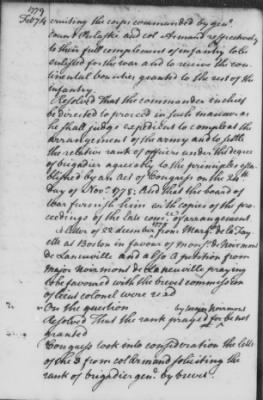 1779
Feb 7th cruiting the corps commanded by genl
count Pulaski and col Armand respectively
to their full complement of infantry to be
enlisted for the war and to receive the con-
tinental bounties granted to the rest of the
infantry.
Resolved That the commander in chief
be directed to proceed in such manner as
he shall judge expedient to compleat the
arrangement of the army and to settle
the relative rank of officers under the degree
of brigadier agreeably to the principles esta-
blished by an Act of Congress on the 24th
Day of Novr 1778: And that the board of
War furnish him with copies of the pro-
ceedings of the late comee of arrangement
A letter of 22 december 1778 from Marqs de la Fay
ette at Boston in favour of monsr de Noirmont
de Laneuville and also a petition from
major Noirmont de Laneuville praying
to be favoured with the brevet commission
of lieut colonel were read
On the question
Resolved That the rank prayed for by major Noirmont be not
granted
Congress took into consideration the letter
of the 3 from col Armand soliciting the
rank of brigadier genl by brevet.